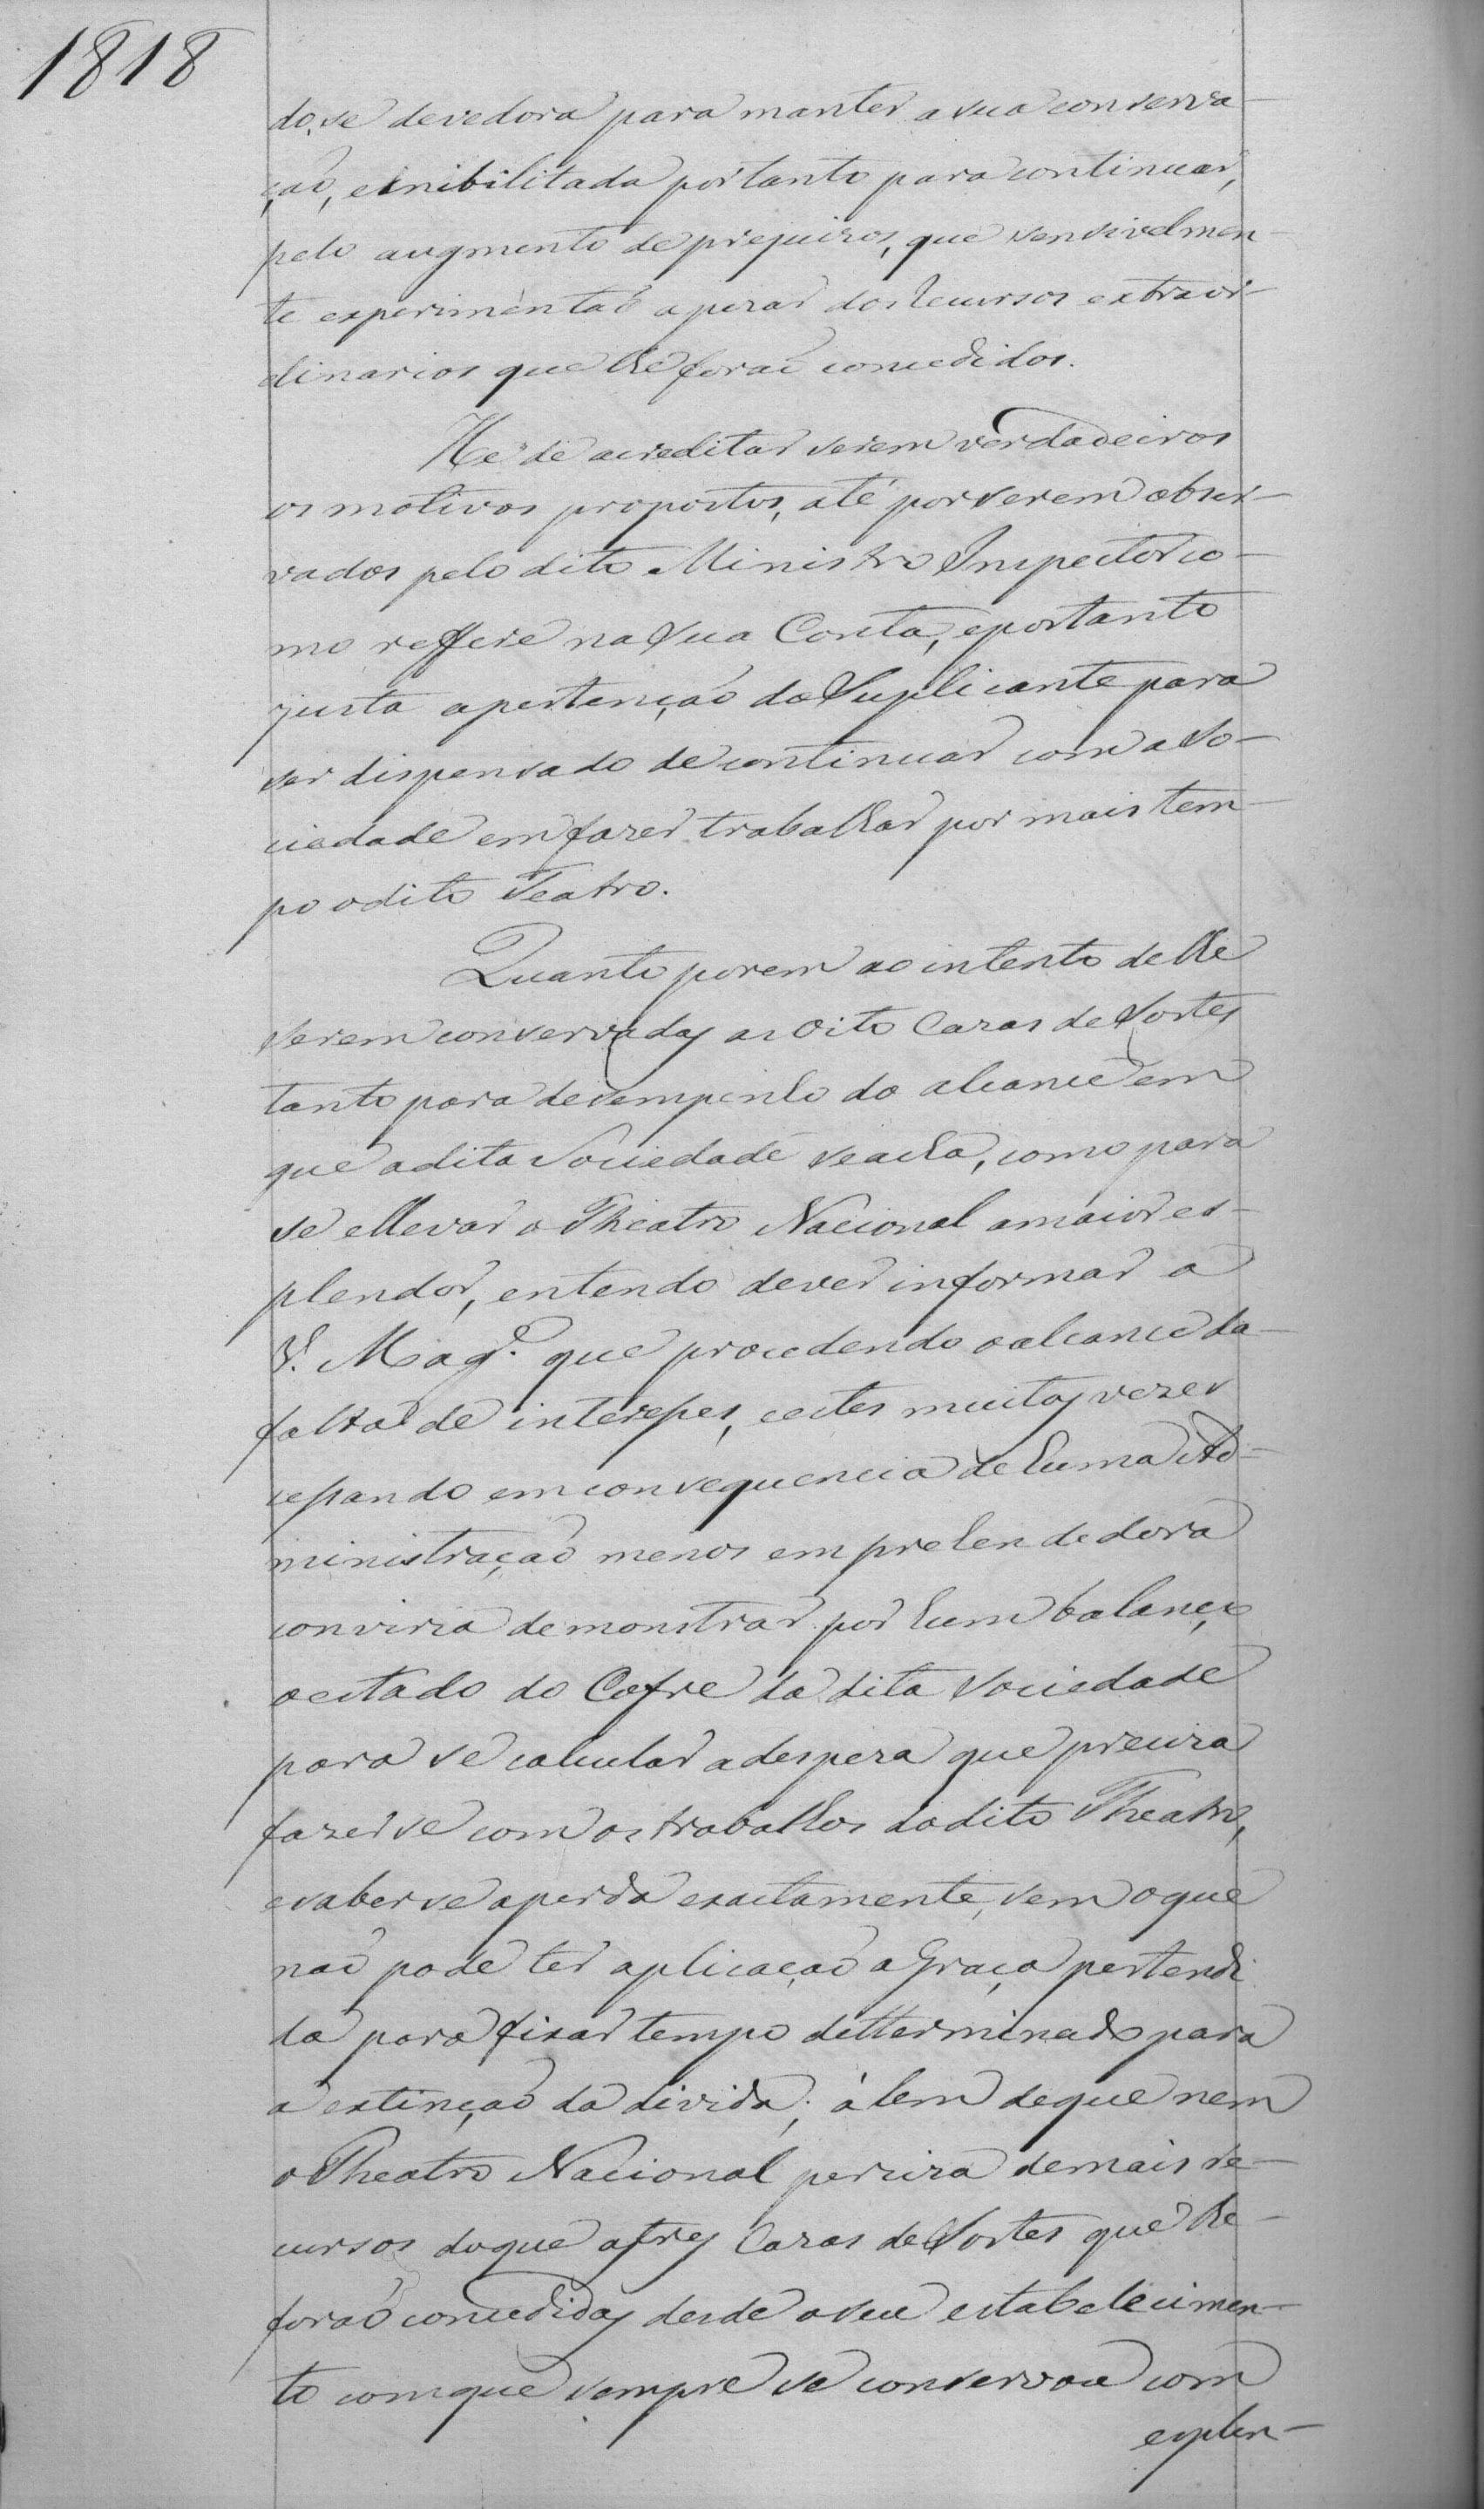 1818
do, se devedora para manter a sua conserva-
çaõ, e inibilitada portanto para continuar,
pelo augmento de prejuizos, que sensivelmen-
te experimentaõ apezar dos recursos extraor-
dinarios que lhe foraõ concedidos.
He de acreditar serem verdadeiros
os motivos propostos, até por serem obser-
vados pelo dito Ministro Inspector co-
mo reffere na sua Conta, e portanto
justa a pertençaõ do Suplicante para
ser dispensado de continuar com a So-
ciedade em fazer trabalhar por mais tem-
po o dito Teatro.
Quanto porem ao intento de lhe
serem conservadas as oito Cazas de Sortes
tanto para desempenho do alcance em
que a dita Sociedade se acha, como para
se ellevar o Theatro Nacional a maior es-
plendor, entendo dever informar a
V. Mag.e que procedendo o alcance da
falta de interesses, e estes muitas vezes
cessando em consequencia de huma Ad-
ministraçaõ menos emprehendedora
conviria demonstrar por hum balanço
o estado do Cofre da dita Sociedade
para se calcular a despeza que preciza
fazerse com os trabalhos do dito Theatro,
e saberse a perda exactamente, sem o que
naõ pode ter aplicaçaõ a Graça pertendi
da para fixar tempo detterminado para
a extinçaõ da divida; álem de que nem
o Theatro Nacional perciza de mais re-
cursos do que as tres Cazas de Sortes que lhe
foraõ concedidas desde o seu estabelecimen-
to com que sempre se conservou com
esplen-